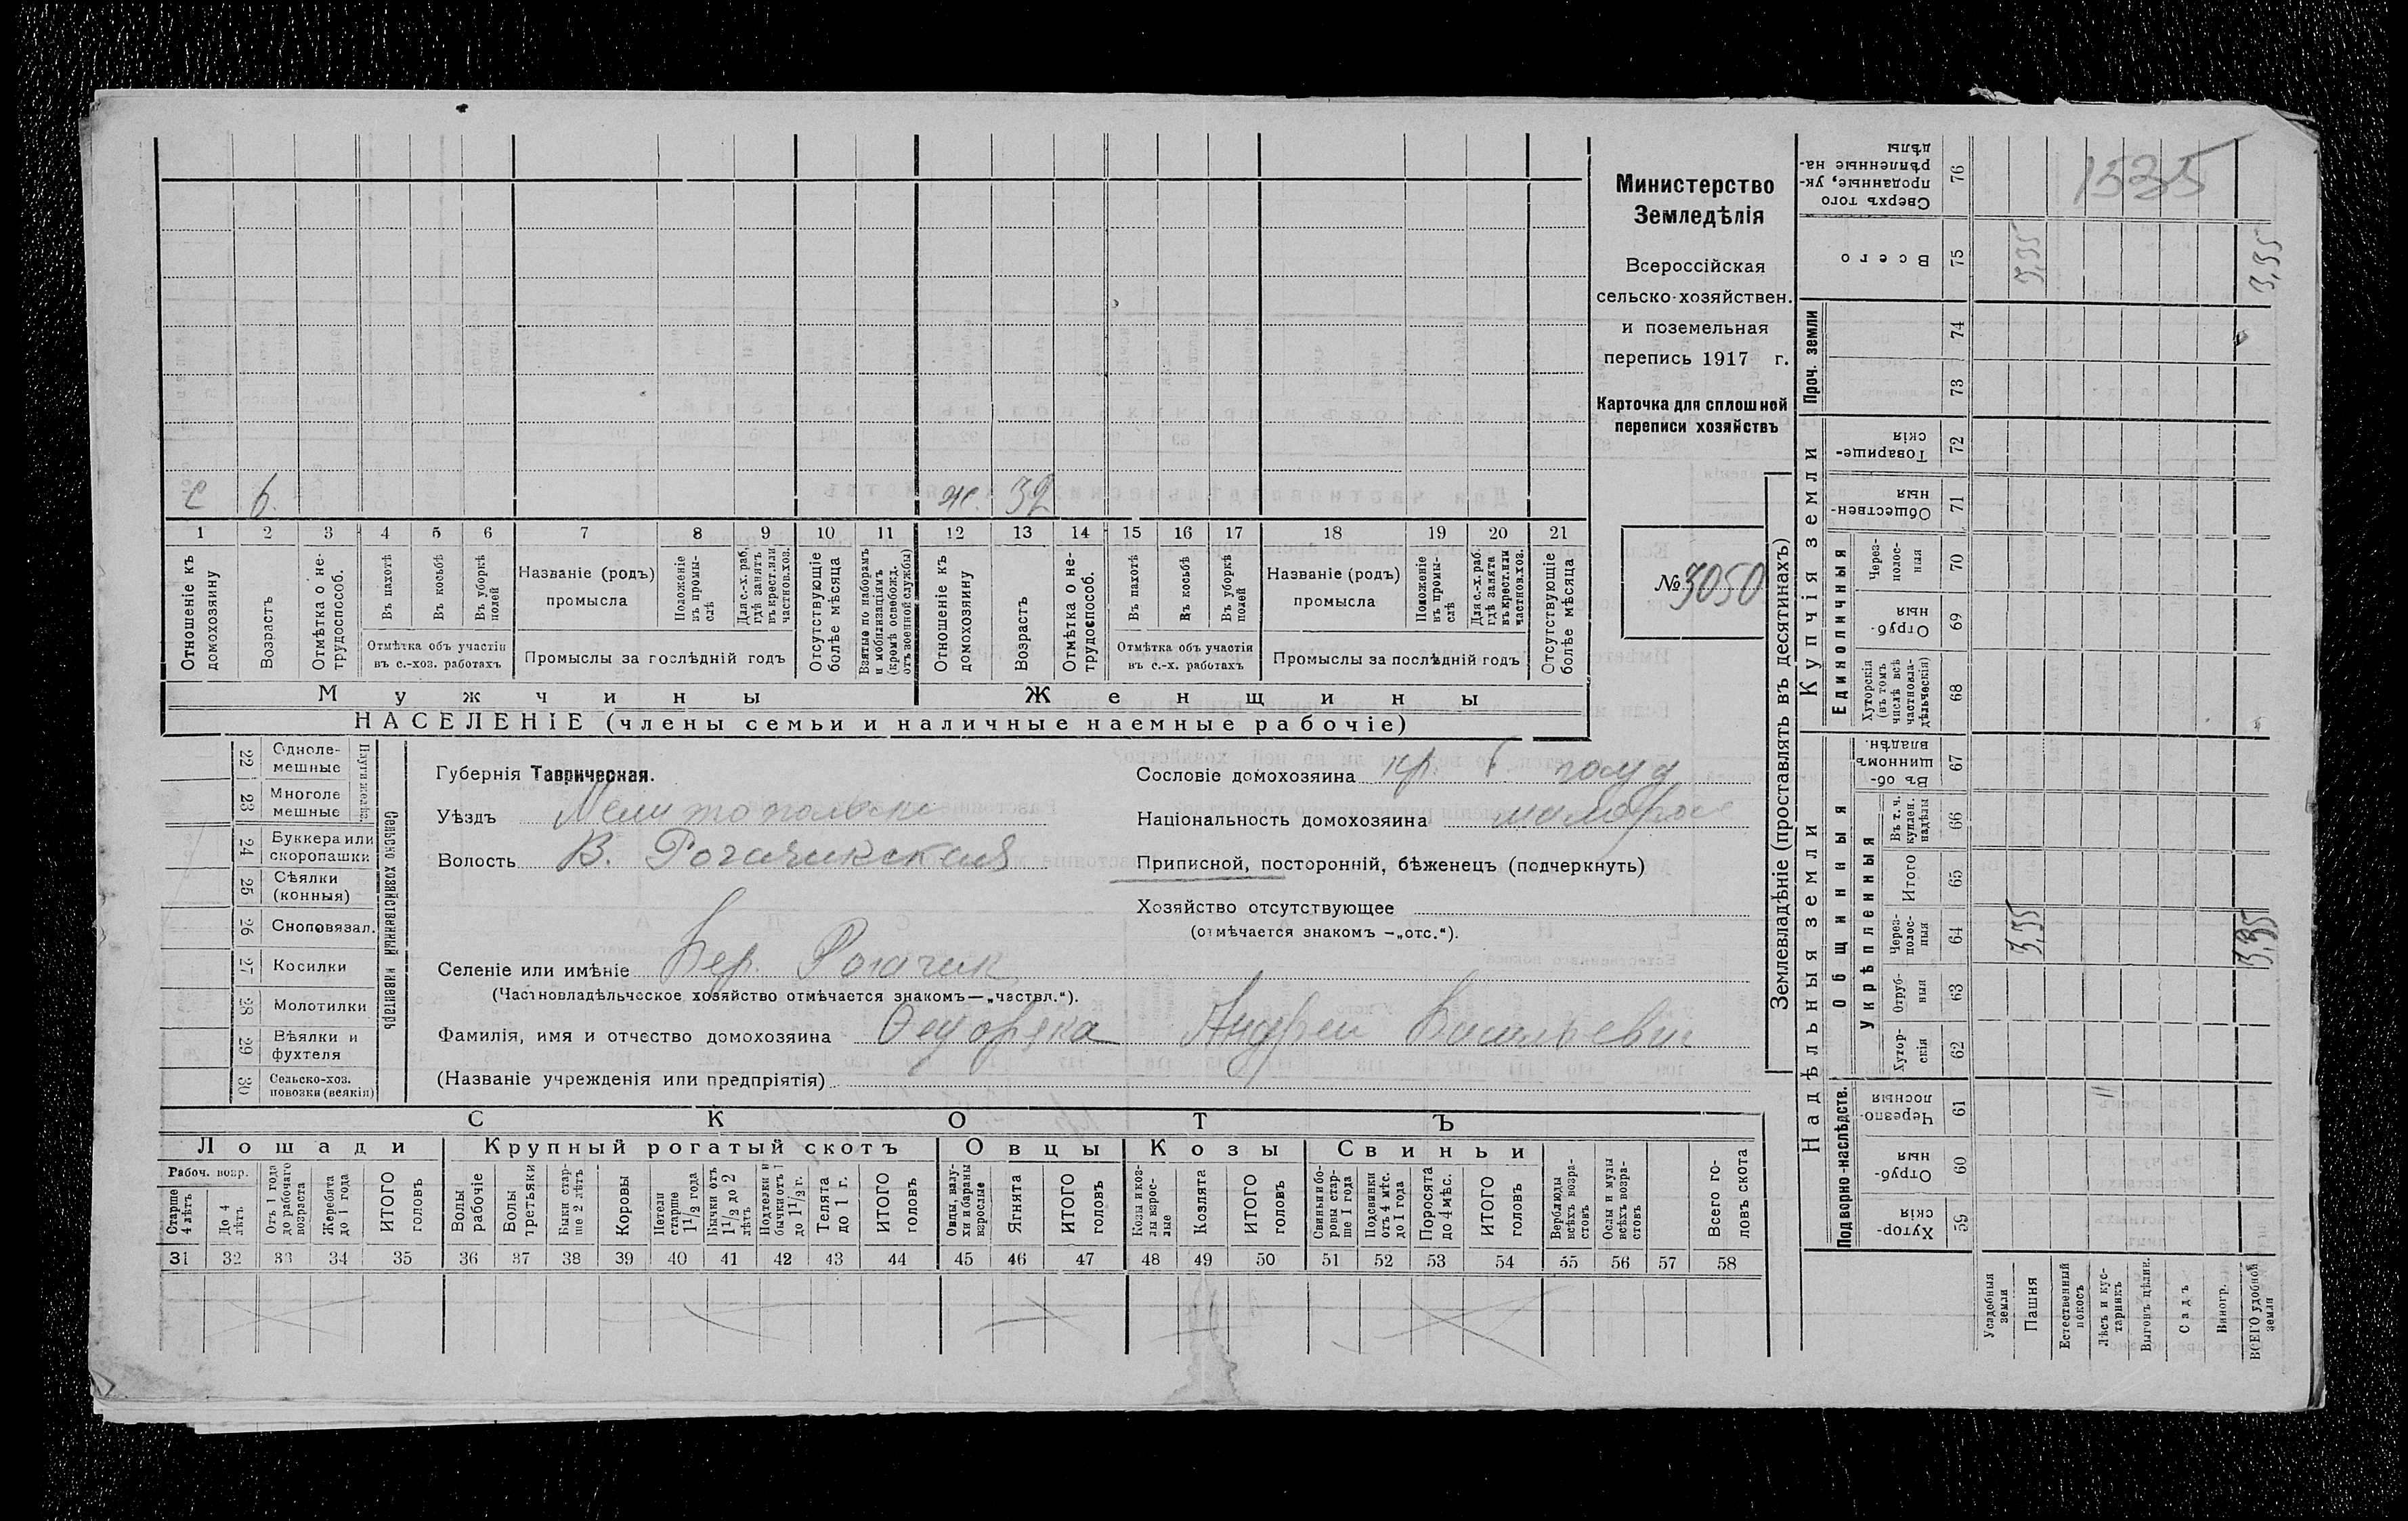 Министерство
Земледѣлія
Всероссійская
сельско-хозяйствен.
и поземельная
перепись 1917 г.
Карточка для сплошной
переписи хозяйствъ
№ 3050
с 6. ж. 32
1 2 3 4 5 6 7 8 9 10 11 12 13 14 15 16 17 18 19 20 21
Отношеніе къ домохозяину
Возрастъ
Отмѣтка о не-трудоспособ.
Въ пахотѣ
Въ косьбѣ
Въ уборкѣ полей
Отмѣтка объ участіи въ с.-хоз. работахъ
Названіе (родъ) промысла
Положеніе въ промы-слѣ
Для с.-х. раб. гдѣ занятъ въ крест. или частнов. хоз.
Промыслы за послѣдній годъ
Отсутствующіе болѣе мѣсяца
Взятые по наборамъ и мобилизаціямъ (кромѣ освобожд. отъ военной службы)
Отношеніе къ домохозяину
Возрастъ
Отмѣтка о не-трудоспособ.
Въ пахотѣ
Въ косьбѣ
Въ уборкѣ полей
Отмѣтка объ участіи въ с.-х. работахъ
Названіе (родъ) промысла
Положеніе въ промы-слѣ
Для с.-х. раб. гдѣ занята въ крест. или частнов. хоз.
Промыслы за послѣдній годъ
Отсутствующіе болѣе мѣсяца
Мужчины Женщины
НАСЕЛЕНІЕ (члены семьи и наличные наемные рабочіе)
22 Одноле-мешные
23 Многоле мешные
Плуги желѣз.
24 Буккера или скоропашки
25 Сѣялки (конныя)
26 Сноповязал.
27 Косилки
28 Молотилки
29 Вѣялки и фухтеля
30 Сельско-хоз. повозки (всякія)
Сельско хозяйственный инвентарь
Губернія Таврическая.
Уѣздъ Мелитопольск
Волость В. Рогачикская
Селеніе или имѣніе Вер. Рогачик
(Частновладѣльческое хозяйство отмѣчается знакомъ—„частвл.“).
Фамилія, имя и отчество домохозяина Андрей Васильевич
(Названіе учрежденія или предпріятія)
Сословіе домохозяина кр.
Національность домохозяина малорос
Приписной, посторонній, бѣженецъ (подчеркнуть)
Хозяйство отсутствующее
(отмѣчается знакомъ —„отс.“).
СКОТЪ
Лошади Крупный рогатый скотъ Овцы Козы Свиньи
Рабоч. возр.
Старше 4 лѣтъ
До 4 лѣтъ
Отъ 1 года до рабочаго возраста
Жеребята до 1 года
ИТОГО головъ
Волы рабочіе
Волы третьяки
Быки стар-ше 2 лѣтъ
Коровы
Нетели старше 1 1/2 года
Бычки отъ 1 1/2 до 2 лѣтъ
Подтелки и бычки отъ 1 до 1 1/2 г.
Телята до 1 г.
ИТОГО головъ
Овцы, валу-хи и бараны взрослые
Ягнята
ИТОГО головъ
Козы и коз-лы взрос-лые
Козлята
ИТОГО головъ
Свиньи и бо-ровы стар-ше 1 года
Подсвинки отъ 4 мѣс. до 1 года
Поросята до 4 мѣс.
ИТОГО головъ
Верблюды всѣхъ возра-стовъ
Ослы и мулы всѣхъ возра-стовъ
Всего го-ловъ скота
31 32 33 34 35 36 37 38 39 40 41 42 43 44 45 46 47 48 49 50 51 52 53 54 55 56 57 58
Землевладѣніе (проставлять въ десятинахъ)
Надѣльныя земли
Купчія земли
Проч. земли
Подворно-наслѣдств.
Общинныя
Укрѣпленныя
Единоличныя
Хутор-скія 59
Отруб-ныя 60
Черезпо-лосныя 61
Хутор-скія 62
Отруб-ныя 63
Черезполос-ныя 64 3,35 3,35
Итого 65
Въ т. ч. куплен. надѣлы 66
Въ об-щинномъ владѣн. 67
Хуторскія (въ томъ числѣ всѣ частновла-дѣльческія) 68
Отруб-ныя 69
Через-полос-ныя 70
Обществен-ныя 71
Товарище-скія 72
73
74
Всего 75 3,35 3,35
Сверхъ того проданные, ук-рѣпленные на-дѣлы 76
1535
Усадебныя земли
Пашня
Естественный покосъ
Лѣсъ и кус-тарникъ
Выгонъ цѣлин.
Садъ
Виногр.
ВСЕГО удобной земли